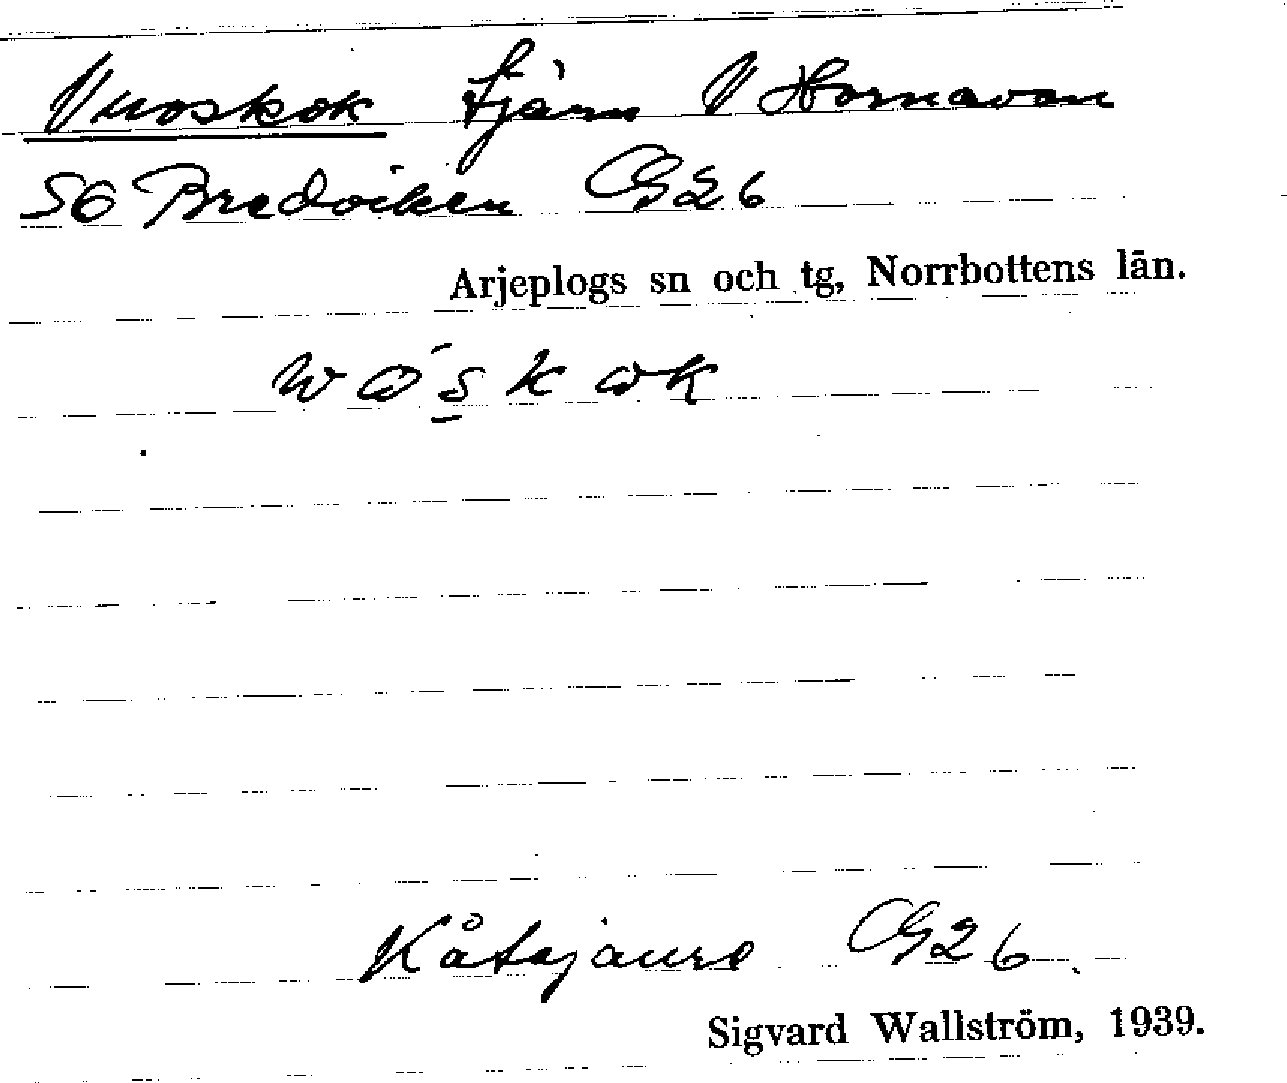 Vuoskok tjärn V Hornavan
SO Bredviken G26
Arjeplogs sn och tg, Norrbottens län.
Kåtajaure G26
Sigvard Wallström, 1939.